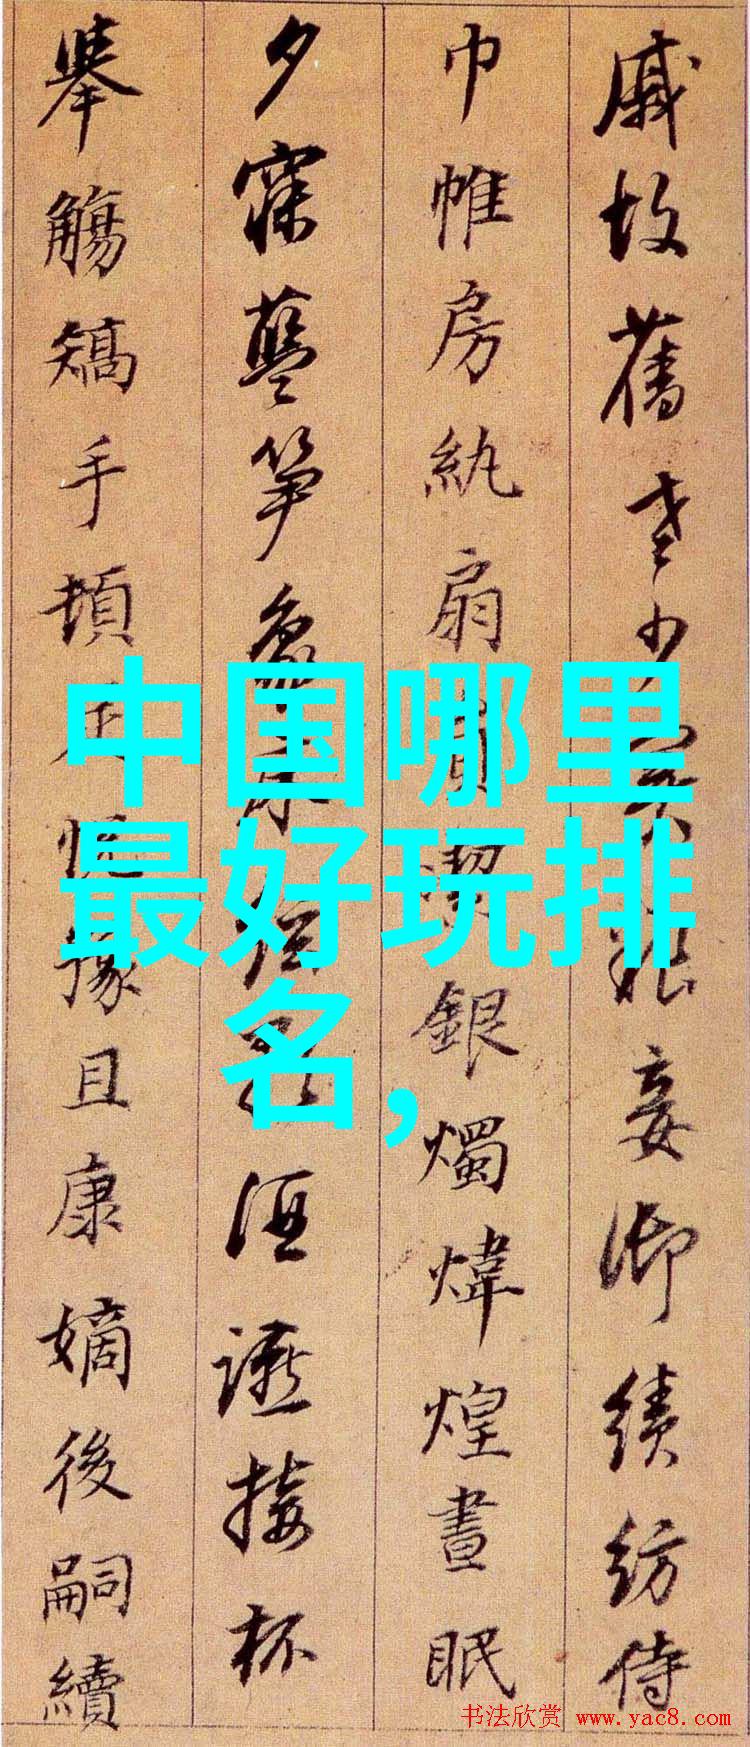 戚故舊老少粮妾御績紡侍
巾帷房紈扇銀燭煒煌晝眠
夕寐藍筍象酒讌接杯
舉觴矯手頓悅豫且康嫡後嗣續
中国哪里
最好玩排
名,
书法欣赏 www.yac8.com